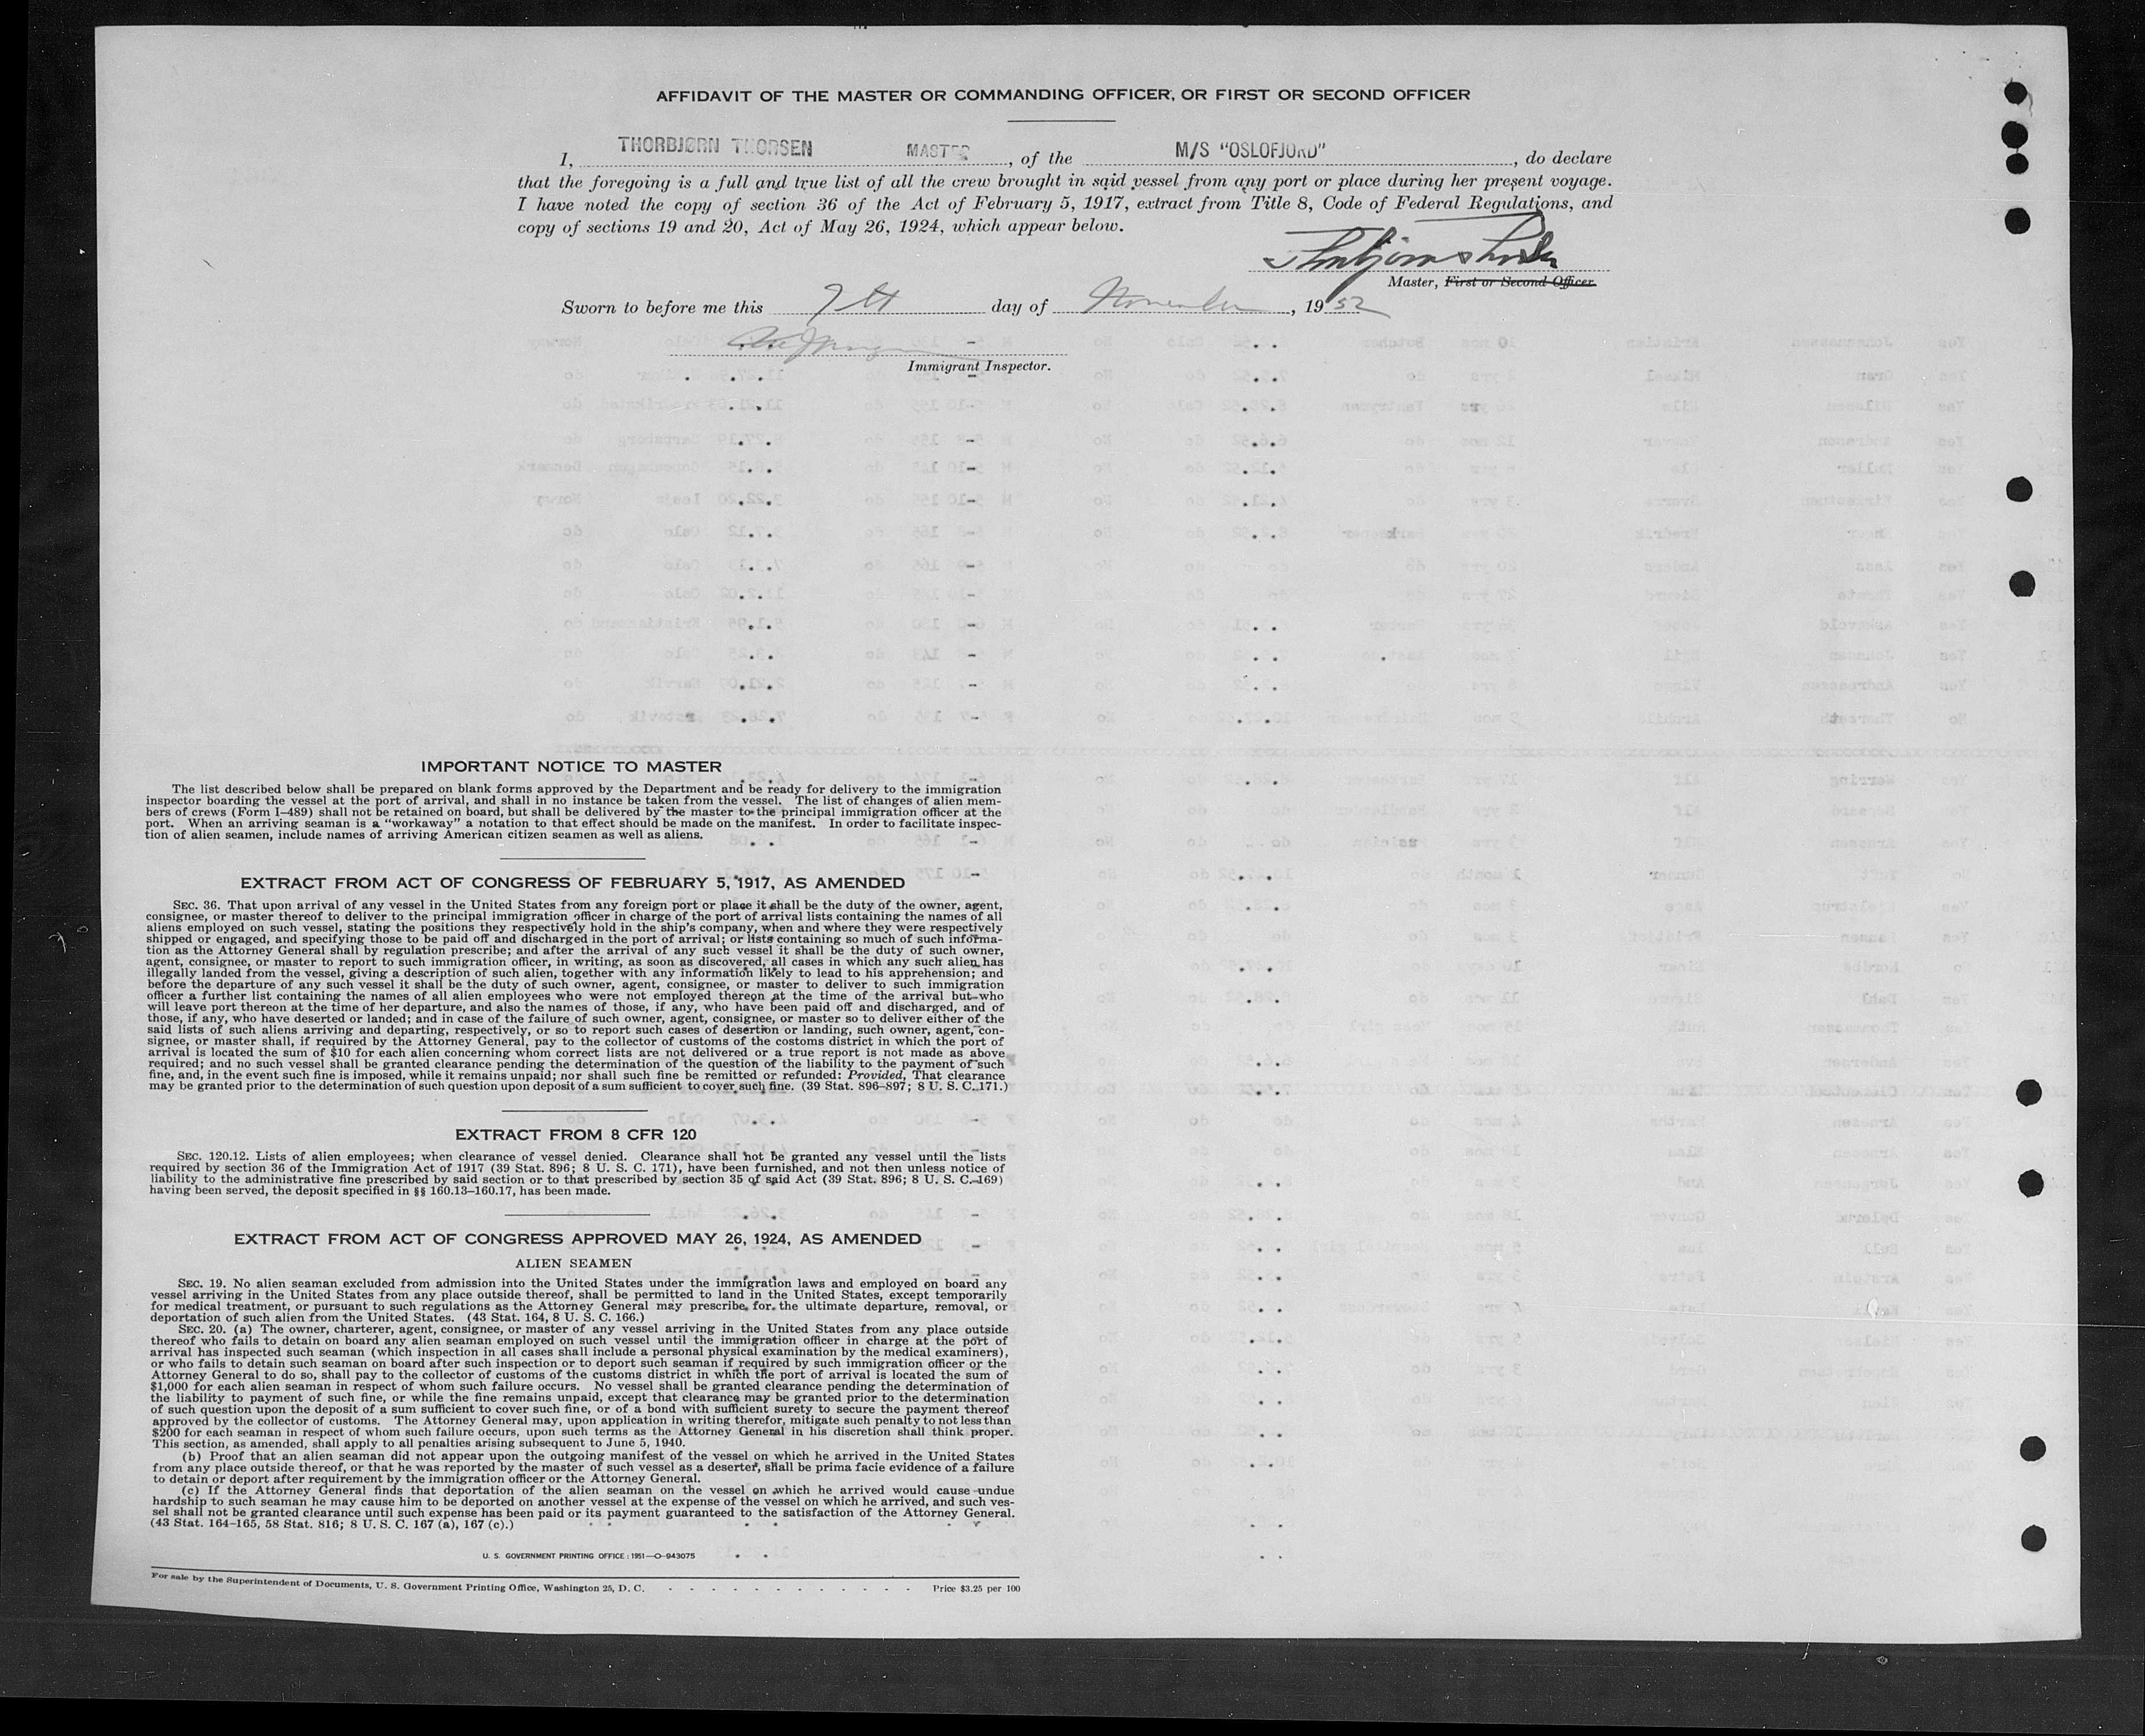 AFFIDAVIT OF THE MASTER OR COMMANDING OFFICER, OR FIRST OR SECOND OFFICER
I, THORBJØRN THORSEN MASTER, of the M/S "OSLOFJORD", do declare
that the foregoing is a full and true list of all the crew brought in said vessel from any port or place during her present voyage.
I have noted the copy of section 36 of the Act of February 5, 1917, extract from Title 8, Code of Federal Regulations, and
copy of sections 19 and 20, Act of May 26, 1924, which appear below.
Master, First or Second Officer.
Sworn to before me this 7th day of November, 1952
Immigrant Inspector.
IMPORTANT NOTICE TO MASTER
The list described below shall be prepared on blank forms approved by the Department and be ready for delivery to the immigration
inspector boarding the vessel at the port of arrival, and shall in no instance be taken from the vessel. The list of changes of alien mem-
bers of crews (Form I–489) shall not be retained on board, but shall be delivered by the master to the principal immigration officer at the
port. When an arriving seaman is a "workaway" a notation to that effect should be made on the manifest. In order to facilitate inspec-
tion of alien seamen, include names of arriving American citizen seamen as well as aliens.
EXTRACT FROM ACT OF CONGRESS OF FEBRUARY 5, 1917, AS AMENDED
SEC. 36. That upon arrival of any vessel in the United States from any foreign port or place it shall be the duty of the owner, agent,
consignee, or master thereof to deliver to the principal immigration officer in charge of the port of arrival lists containing the names of all
aliens employed on such vessel, stating the positions they respectively hold in the ship's company, when and where they were respectively
shipped or engaged, and specifying those to be paid off and discharged in the port of arrival; or lists containing so much of such informa-
tion as the Attorney General shall by regulation prescribe; and after the arrival of any such vessel it shall be the duty of such owner,
agent, consignee, or master to report to such immigration officer, in writing, as soon as discovered, all cases in which any such alien has
illegally landed from the vessel, giving a description of such alien, together with any information likely to lead to his apprehension; and
before the departure of any such vessel it shall be the duty of such owner, agent, consignee, or master to deliver to such immigration
officer a further list containing the names of all alien employees who were not employed thereon at the time of the arrival but who
will leave port thereon at the time of her departure, and also the names of those, if any, who have been paid off and discharged, and of
those, if any, who have deserted or landed; and in case of the failure of such owner, agent, consignee, or master so to deliver either of the
said lists of such aliens arriving and departing, respectively, or so to report such cases of desertion or landing, such owner, agent, con-
signee, or master shall, if required by the Attorney General, pay to the collector of customs of the costoms district in which the port of
arrival is located the sum of $10 for each alien concerning whom correct lists are not delivered or a true report is not made as above
required; and no such vessel shall be granted clearance pending the determination of the question of the liability to the payment of such
fine, and, in the event such fine is imposed, while it remains unpaid; nor shall such fine be remitted or refunded: Provided, That clearance
may be granted prior to the determination of such question upon deposit of a sum sufficient to cover such fine. (39 Stat. 896–897; 8 U. S. C. 171.)
EXTRACT FROM 8 CFR 120
SEC. 120.12. Lists of alien employees; when clearance of vessel denied. Clearance shall not be granted any vessel until the lists
required by section 36 of the Immigration Act of 1917 (39 Stat. 896; 8 U. S. C. 171), have been furnished, and not then unless notice of
liability to the administrative fine prescribed by said section or to that prescribed by section 35 of said Act (39 Stat. 896; 8 U. S. C. 169)
having been served, the deposit specified in §§ 160.13–160.17, has been made.
EXTRACT FROM ACT OF CONGRESS APPROVED MAY 26, 1924, AS AMENDED
ALIEN SEAMEN
SEC. 19. No alien seaman excluded from admission into the United States under the immigration laws and employed on board any
vessel arriving in the United States from any place outside thereof, shall be permitted to land in the United States, except temporarily
for medical treatment, or pursuant to such regulations as the Attorney General may prescribe for the ultimate departure, removal, or
deportation of such alien from the United States. (43 Stat. 164, 8 U. S. C. 166.)
SEC. 20. (a) The owner, charterer, agent, consignee, or master of any vessel arriving in the United States from any place outside
thereof who fails to detain on board any alien seaman employed on such vessel until the immigration officer in charge at the port of
arrival has inspected such seaman (which inspection in all cases shall include a personal physical examination by the medical examiners),
or who fails to detain such seaman on board after such inspection or to deport such seaman if required by such immigration officer or the
Attorney General to do so, shall pay to the collector of customs of the customs district in which the port of arrival is located the sum of
$1,000 for each alien seaman in respect of whom such failure occurs. No vessel shall be granted clearance pending the determination of
the liability to payment of such fine, or while the fine remains unpaid, except that clearance may be granted prior to the determination
of such question upon the deposit of a sum sufficient to cover such fine, or of a bond with sufficient surety to secure the payment thereof
approved by the collector of customs. The Attorney General may, upon application in writing therefor, mitigate such penalty to not less than
$200 for each seaman in respect of whom such failure occurs, upon such terms as the Attorney General in his discretion shall think proper.
This section, as amended, shall apply to all penalties arising subsequent to June 5, 1940.
(b) Proof that an alien seaman did not appear upon the outgoing manifest of the vessel on which he arrived in the United States
from any place outside thereof, or that he was reported by the master of such vessel as a deserter, shall be prima facie evidence of a failure
to detain or deport after requirement by the immigration officer or the Attorney General.
(c) If the Attorney General finds that deportation of the alien seaman on the vessel on which he arrived would cause undue
hardship to such seaman he may cause him to be deported on another vessel at the expense of the vessel on which he arrived, and such ves-
sel shall not be granted clearance until such expense has been paid or its payment guaranteed to the satisfaction of the Attorney General.
(43 Stat. 164–165, 58 Stat. 816; 8 U. S. C. 167 (a), 167 (c).)
U. S. GOVERNMENT PRINTING OFFICE : 1951—O–943075
For sale by the Superintendent of Documents, U. S. Government Printing Office, Washington 25, D. C. - - - - - - - - - - - - Price $3.25 per 100